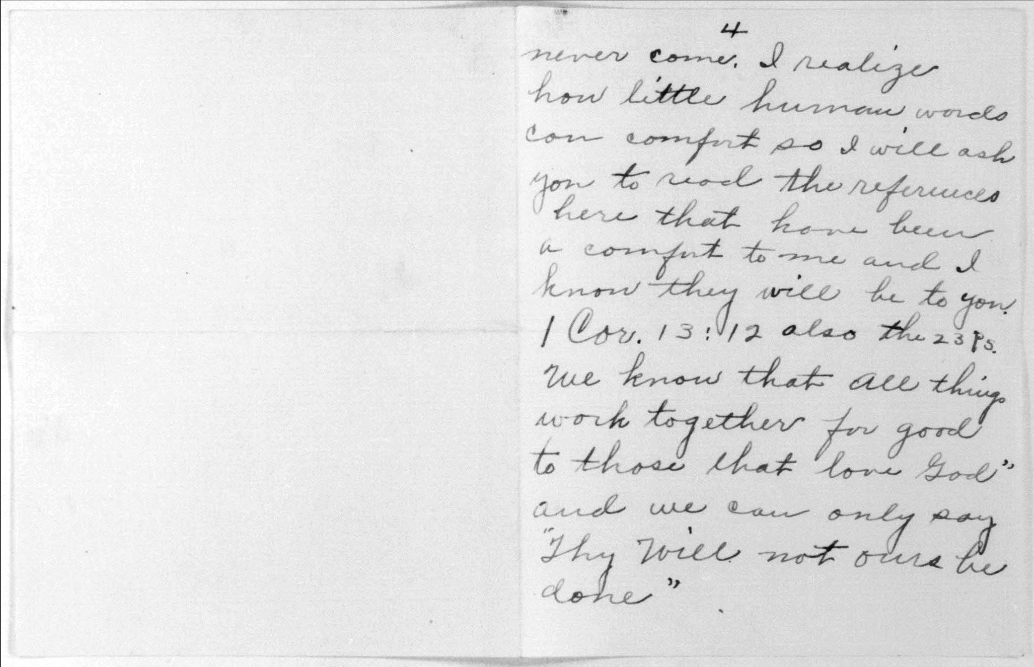 4
never come. I realize
how little human words
can comfort so I will ask
you to read the references
here that have been
a comfort to me and I
know they will be to you.
1 Cor. 13:12 also the 23 Ps.
We know that all things
work together for good
to those that love God"
and we can only say
"Thy Will not ours be
done"